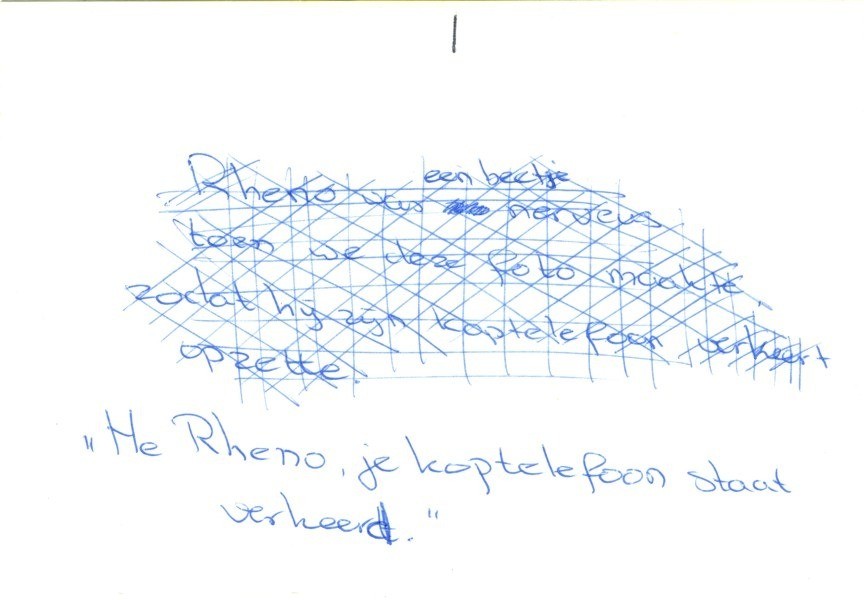 een beetje
Rheno was nerveus
toen we deze foto maakte,
zodat hij zijn koptelefoon verkeert
opzette.
„He Rheno, je koptelefoon staat
verkeerd."